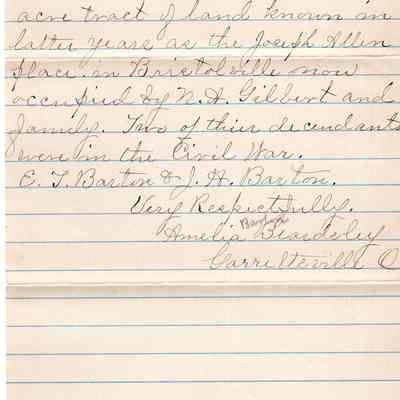 acre tract of land known in
latter years as the Joseph Allen
place in Bristolville now
occupied by N. A. Gilbert and
family. Two of thier decendants
were in the Civil War.
E. T. Barton & J. A. Barton.
Very Respectfully.
Barton
Amelia Beardsley
Garrettsville O